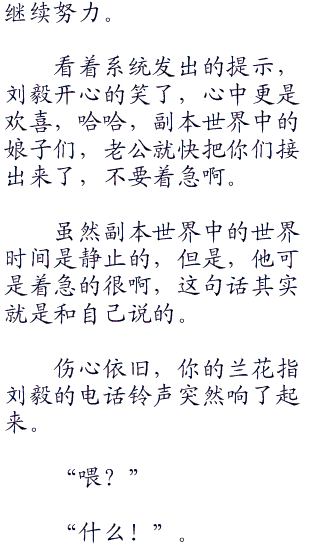 继续努力。
看着系统发出的提示，
刘毅开心的笑了，心中更是
欢喜，哈哈，副本世界中的
娘子们，老公就快把你们接
出来了，不要着急啊。
虽然副本世界中的世界
时间是静止的，但是，他可
是着急的很啊，这句话其实
就是和自己说的。
伤心依旧，你的兰花指
刘毅的电话铃声突然响了起
来。
“喂？”
“什么！”。